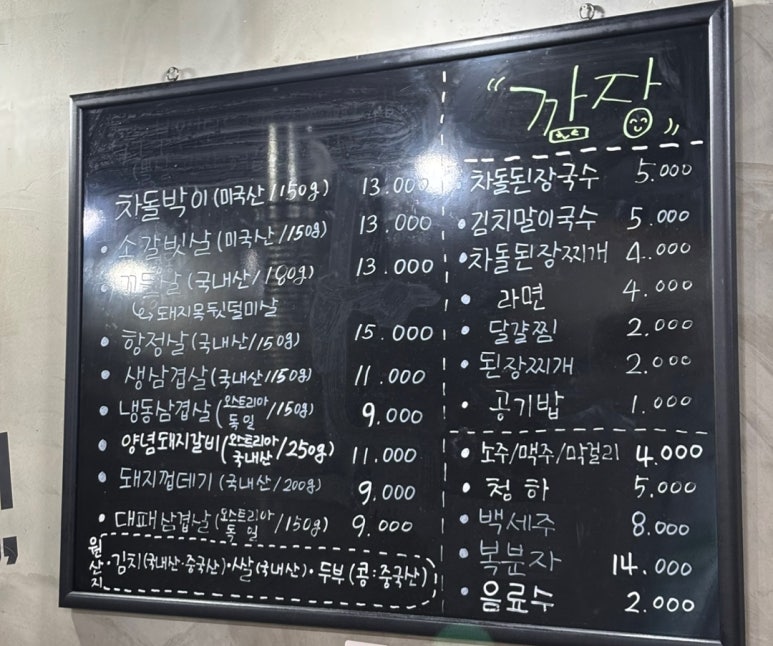 차돌박이(미국산/150g) 13.000
• 소갈빗살(미국산/150g) 13.000
• 꼬들살(국내산/180g) 13.000
↳ 돼지목뒷덜미살
• 항정살(국내산/150g) 15.000
• 생삼겹살(국내산/150g) 11.000
• 냉동삼겹살(오스트리아 독일/150g) 9.000
• 양념돼지갈비(오스트리아 국내산/250g) 11.000
• 돼지껍데기(국내산/200g) 9.000
• 대패삼겹살(오스트리아 독일/150g) 9.000
원산지 •김치(국내산·중국산)•쌀(국내산)•두부(콩:중국산)
"깜장"
• 차돌된장국수 5.000
• 김치말이국수 5.000
• 차돌된장찌개 4.000
• 라면 4.000
• 달걀찜 2.000
• 된장찌개 2.000
• 공기밥 1.000
• 소주/맥주/막걸리 4.000
• 청하 5.000
• 백세주 8.000
• 복분자 14.000
• 음료수 2.000